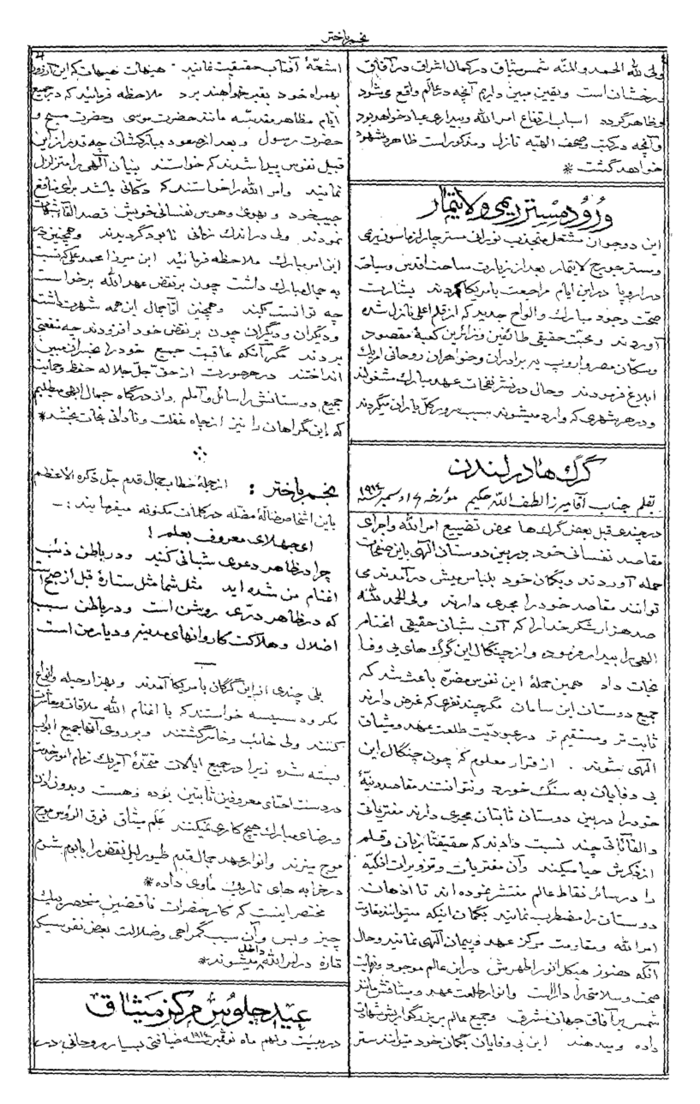 نجم باختر
ولی لله الحمد و المنّه شمس میثاق در کمال اشراق در آفاق
درخشان است و یقین مبین داریم آنچه در عالم واقع میشود
و ظاهر گردد اسباب ارتفاع امر الله و بیداری عباد خواهد بود
و آنچه در کتب و صحف الهیّه نازل و مذکور است ظاهر و مشهود
خواهد گشت *
ورود مستر ریمی و لاتیمار
این دو جوان مشتعل منجذب نورانی مستر چارلز ماسون ریمی
و مستر جورج لاتیمار بعد از زیارت ساحت اقدس و سیاحت
در اروپا در این ایام مراجعت بامریکا کردند بشارت
صحّت وجود مبارک و الواح جدید که از قلم اعلی نازل شده
آوردند و محبّت حقیقی طائفین و زائرین کعبهٔ مقصود
و سکّان مصر و اروپ به برادران و خواهران روحانی امریک
ابلاغ فرمودند و حال در نشر نفحات عهد مبارک مشغولند
و در هر شهری که وارد میشوند سبب سرور کلّ یاران میگردند
گرگ ها در لندن
بقلم جناب آقا میرزا لطف الله حکیم مؤرخه ۱۶ دسمبر ۱۹۱۴
در چندی قبل بعض گرگ ها محض تضییع امر الله و اجرای
مقاصد نفسانی خود در بین دوستان الهی باین صفحات
حمله آوردند و بگمان خود بلباس میش در آمدند می
توانند مقاصد خود را مجری دارند ولی الحمد لله
صد هزار شکر خدا را که آن شبان حقیقی اغنام
الهی را بیدار فرموده و از چنگال این گرگ های بی وفا
نجات داد همین حملهٔ این نفوس مضرّه باعث شد که
جمیع دوستان این سامان مگر چند نفری که غرض دارند
ثابت تر و مستقیم تر در عبودیّت طلعت عهد و میثاق
الهی شوند . از قرار معلوم که چون چنگال این
بی وفایان به سنگ خورد و نتوانستند مقاصد دنیّهٔ
خود را در بین دوستان ثابتان مجری دارند مفتریاتی
و القاآتی چند نسبت دادند که حقیقتاً زبان و قلم
از ذکرش حیا میکند و آن مفتریات و تزویرات افکیّه
را در سائر نقاط عالم منتشر نموده اند تا اذهان
دوستان را مضطرب نمایند بگمان اینکه میتوانند مقاومت
امر الله و مقاومت مرکز عهد و پیمان الهی نمایند و حال
آنکه هنوز هیکل انور اطهرش در این عالم موجود و نهایت
صحّت و سلامتی را دارا است و انوار طلعت عهد و میثاقش مانند
شمس بر آفاق جهان مشرق و جمیع عالم بر بزرگواریش شهادت
داده و میدهند این بی وفایان بگمان خود میتوانند ستر
اشعّهٔ آفتاب حقیقت نمایند . هیهات هیهات که این آرزو را
بهمراه خود بقبر خواهند برد ملاحظه فرمائید که در جمیع
ایام مظاهر مقدّسه مانند حضرت موسی و حضرت مسیح و
حضرت رسول و بعد از صعود مبارکشان چه قدر از این
قبیل نفوس پیدا شدند که خواستند بنیان الهی را متزلزل
نمایند و امر الله را خواستند که دکّانی باشد برای منافع
جیب خود و بهوی و هوس نفسانی خویش قصد القا شبهات
نمودند ولی در اندک زمانی نابود گردیدند و همچنین در
این امر مبارک ملاحظه فرمائید این میرزا محمد علی که نسبت
به جمال مبارک داشت چون بر نقض عهد الله برخواست
چه توانست بکند و همچنین آقا جمال این همه شهرت داشت
و دیگران و دیگران چون بر نقض خود افزودند چه منفعتی
بردند مگر آنکه عاقبت جمیع خود را بخسران مبین
انداختند در هر صورت از حقّ جلّ جلاله حفظ و حمایت
جمیع دوستانش را سائل و آملم و از درگاه جمال ابهی میطلبم
که این گمراهان را نیز از چاه غفلت و نادانی نجات بخشد *
نجم باختر : از جملهٔ خطاب جمال قدم جلّ ذکره الاعظم
باین اشخاص ضالّهٔ مضلّه در کلمات مکنونه میفرمایند : ــ
ای جهلای معروف بعلم !
چرا در ظاهر دعوی شبانی کنید و در باطن ذئب
اغنام من شده اید مثل شما مثل ستارهٔ قبل از صبح است
که در ظاهر درّی و روشن است و در باطن سبب
اضلال و هلاکت کاروانهای مدینه و دیار من است
بلی چندی از این گرگان بامریکا آمدند و بهزار حیله و انواع
مکر و دسیسه خواستند که با اغنام الله ملاقات و معاشرت
کنند ولی خائب و خاسر گشتند و بر روی آنها جمیع ابواب
بسته شده زیرا در جمیع ایالات متّحدهٔ آمریک زمام امور خدمت
در دست احبّای معروفین ثابتین بوده و هست و بدون اذن
و رضای مبارک هیچ کاری نمیکنند علَم میثاق فوق الرؤس موج
موج میزند و انوار عهد جمال قدم طیور لیل نقض را بابوم شوم
در خرابه های تاریک مأوی داده *
مختصر اینست که کار حضرات ناقضین منحصر بیک
چیز و بس و آن سبب گمراهی و ضلالت بعض نفوسیکه
تازه در امر الله داخل میشوند *
عید جلوس مرکز میثاق
در بیست و نهم ماه نوفمبر ۱۹۱۴ ضیافتی بسیار روحانی در